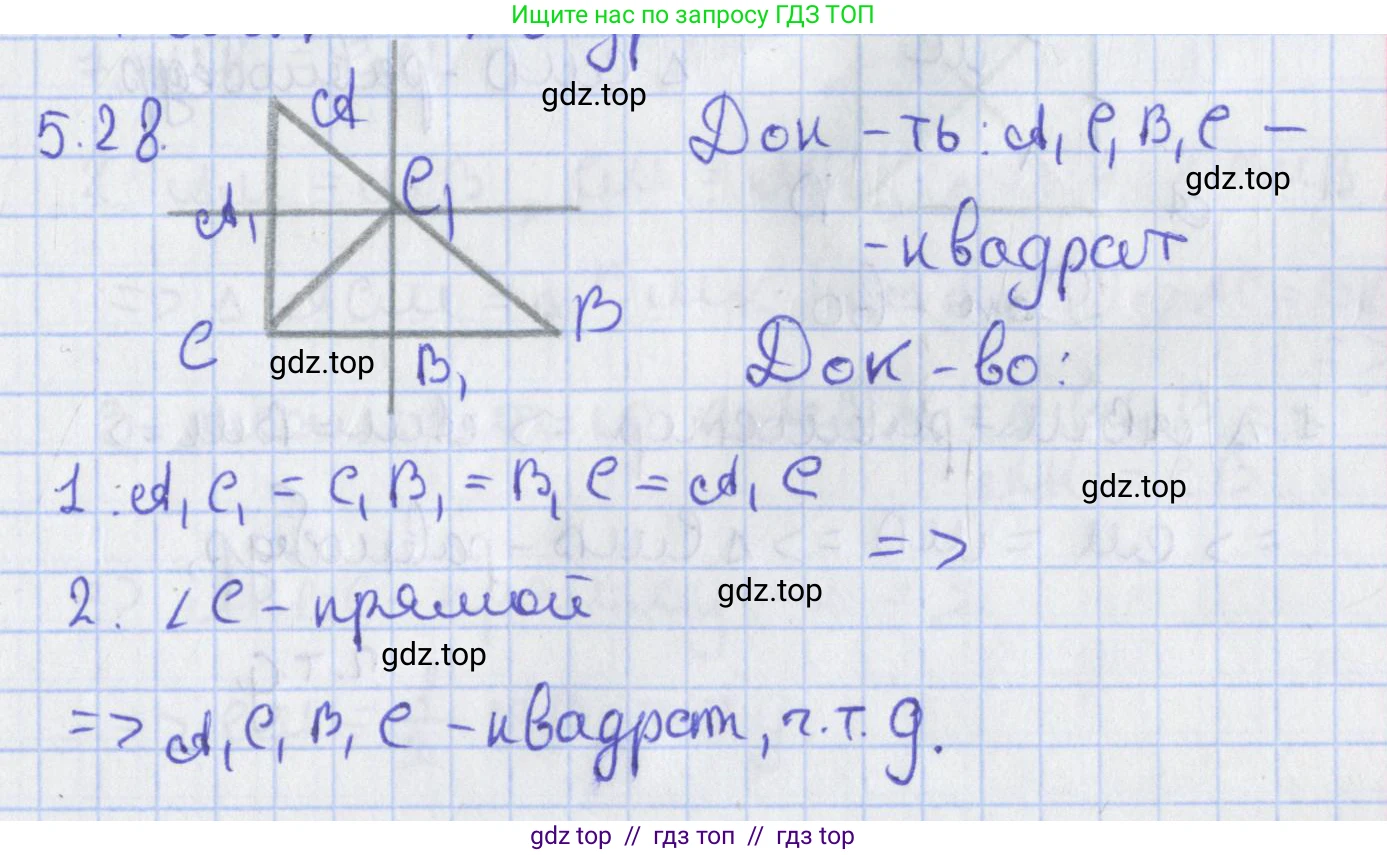 Ищите нас по запросу ГДЗ ТОП
5.28.
A
C₁
A₁
C
B
B₁
gdz.top
Док-ть: A₁C₁B₁C –
gdz.top
-квадрат
gdz.top
Док-во:
1. A₁C₁ = C₁B₁ = B₁C = A₁C
gdz.top
=>
2. ∠C – прямой
gdz.top
gdz.top
=> A₁C₁B₁C – квадрат, ч.т.д.
gdz top // гдз топ // гдз top